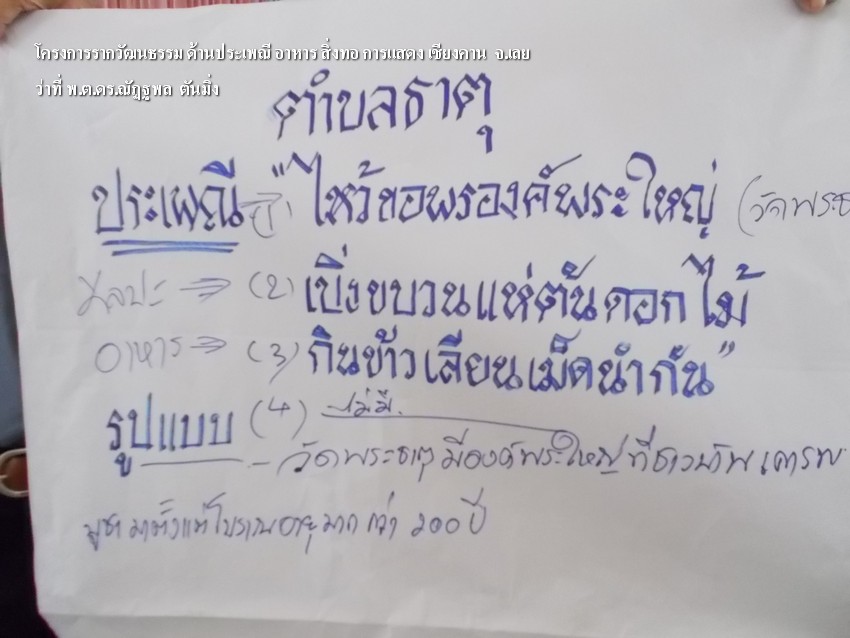 โครงการรากวัฒนธรรม ด้านประเพณี อาหาร สิ่งทอ การแสดง เชียงคาน จ.เลย
ว่าที่ พ.ต.ดร.ณัฏฐพล ตันมิ่ง
ตำบลธาตุ
ประเพณี ⇒ (1) "ไหว้ขอพรองค์พระใหญ่ (วัดพระธ
ศิลปะ ⇒ (2) เบิ่งขบวนแห่ต้นดอกไม้
อาหาร ⇒ (3) กินข้าวเลียนเม็ดนำกัน"
รูปแบบ (4) ไม่มี.
- วัดพระธาตุ มีองค์พระใหญ่ ที่ชาวบ้าน เคารพ
บูชา มาตั้งแต่โบราณ อายุมากกว่า 200 ปี